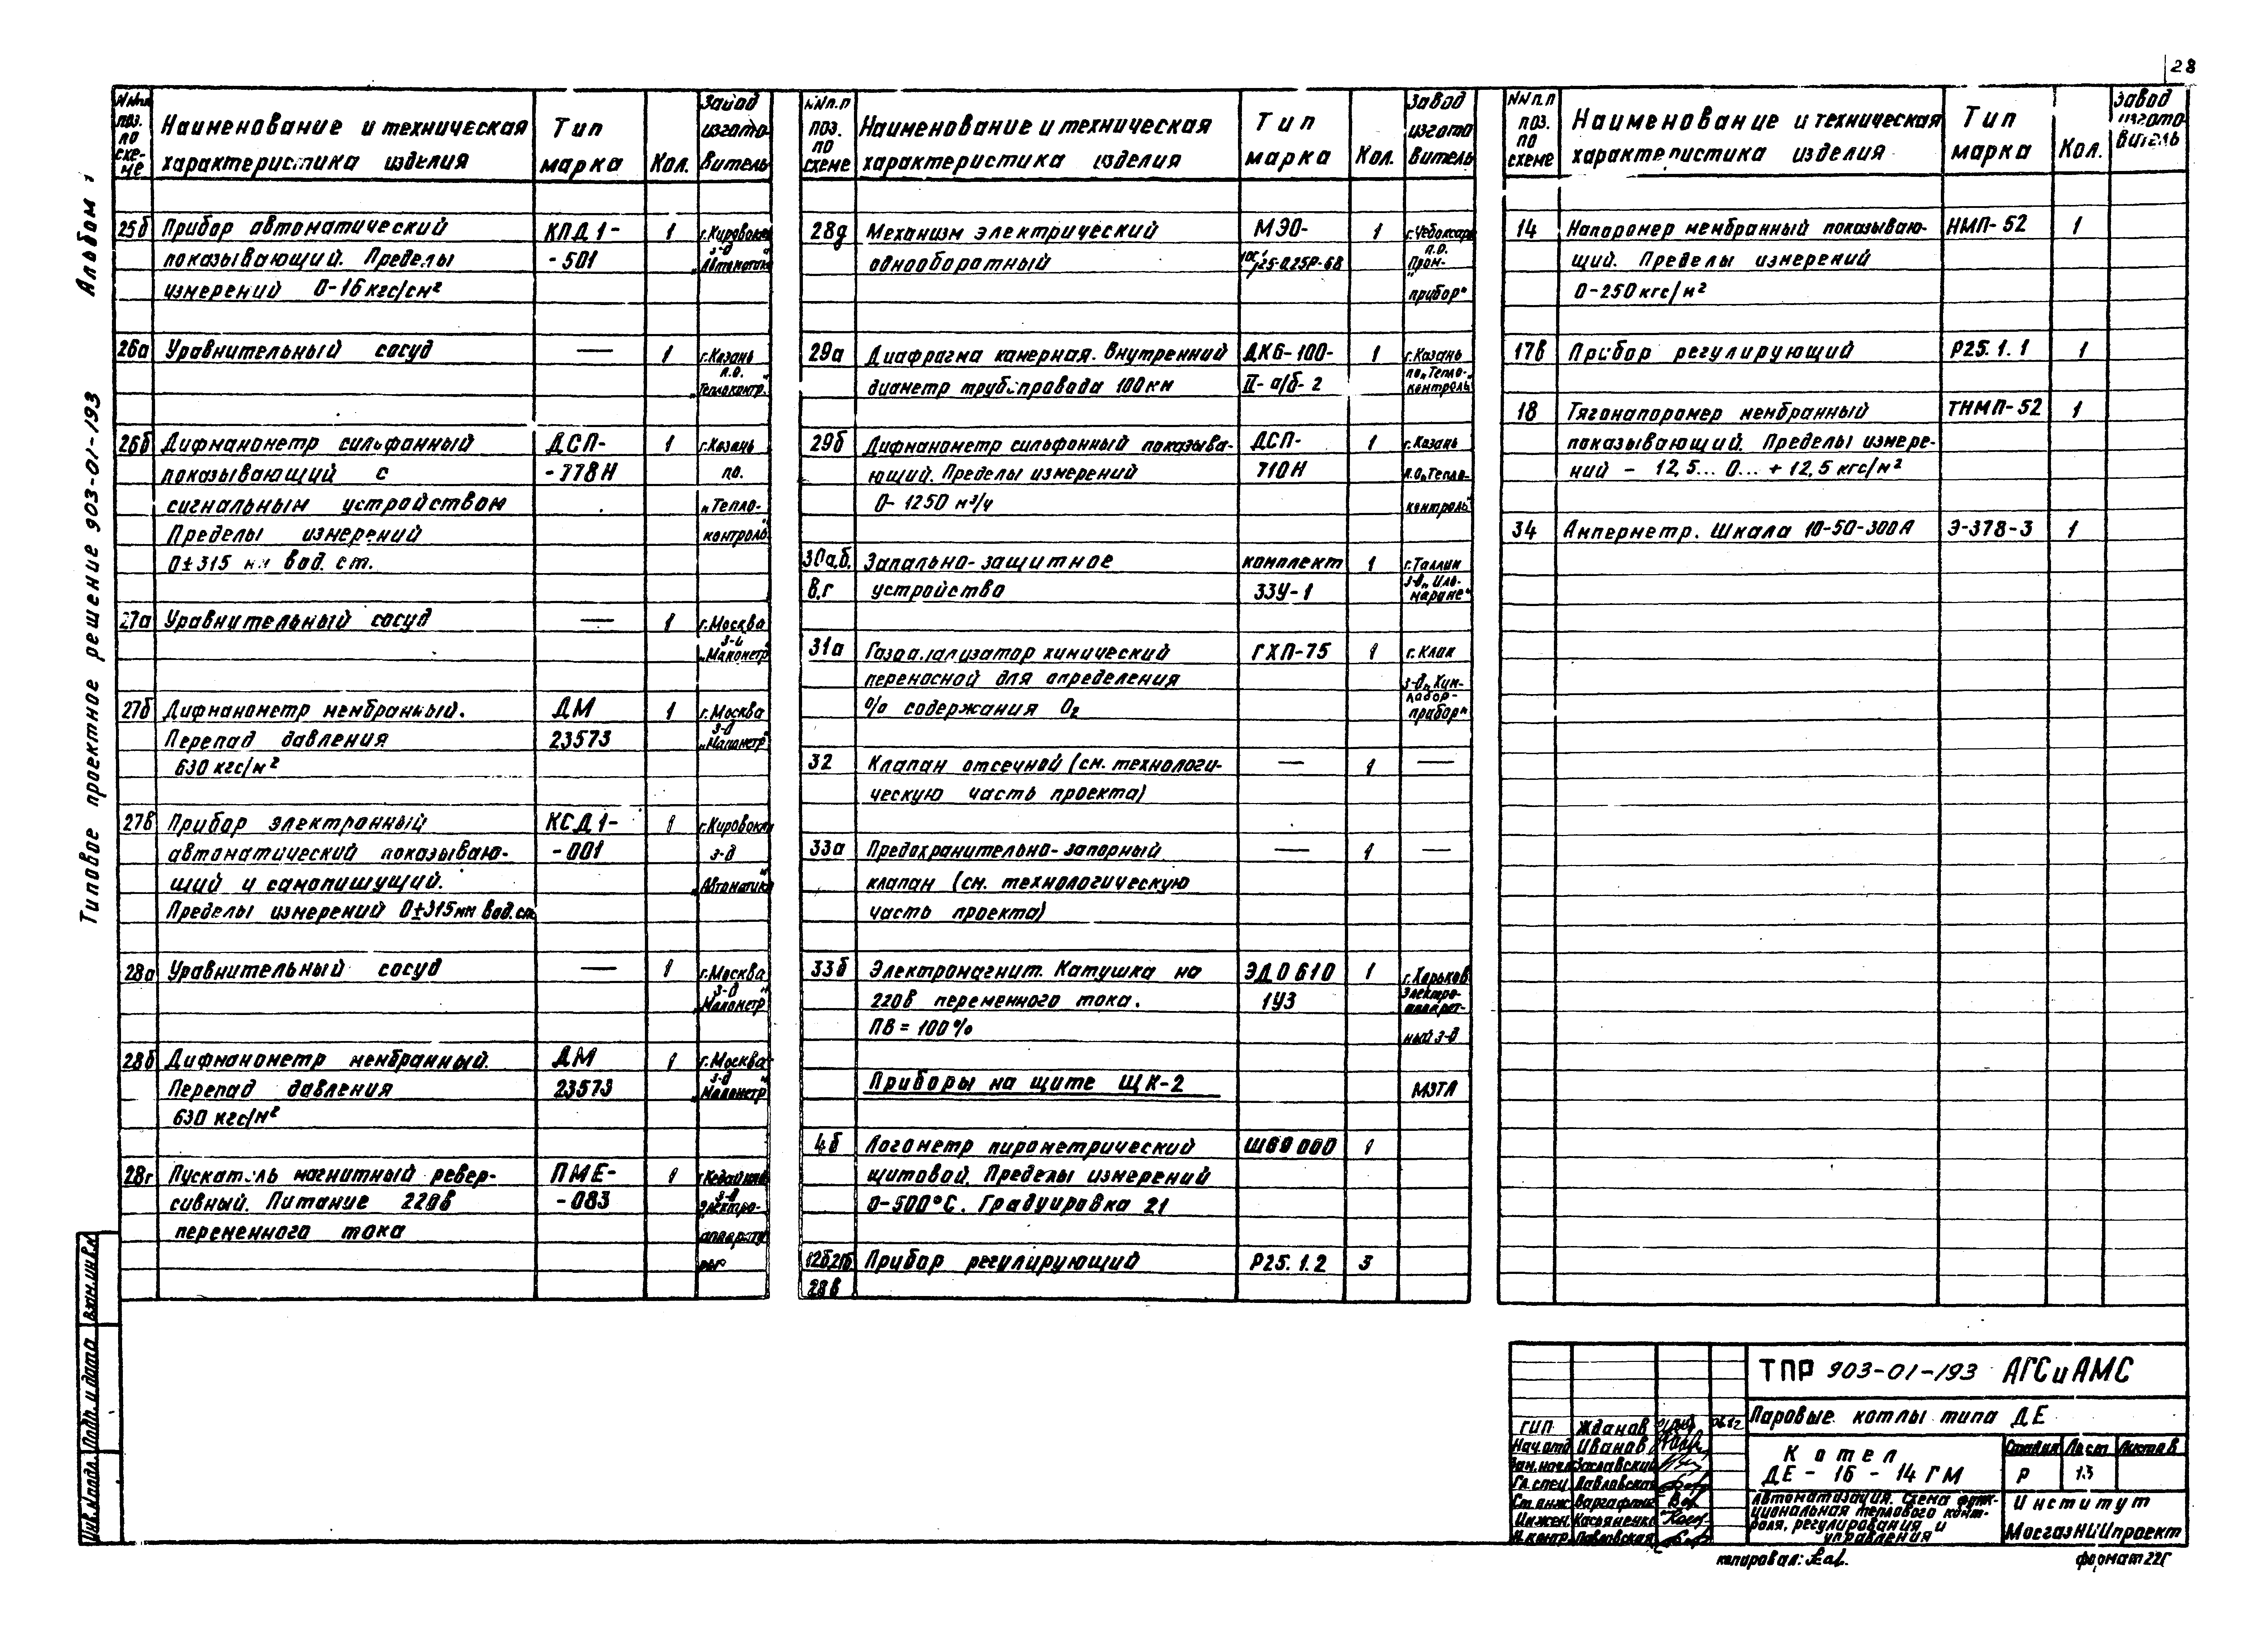 28
Альбом 1
Типовое проектное решение 903-01-193
NN п.п поз. по схе-ме
Наименование и техническая характеристика изделия
Тип марка
Кол.
Завод изгото витель
25б Прибор автоматический КПД1- 1 г. Кировокан
показывающий. Пределы -501 з-д
измерений 0-16 кгс/см² „Автоматика"
26а Уравнительный сосуд — 1 г. Казань
п.о.
„Теплоконтр."
26б Дифманометр сильфонный ДСП- 1 г. Казань
показывающий с -778Н по.
сигнальным устройством „Тепло-
Пределы измерений контроль"
0±315 мм вод. ст.
27а Уравнительный сосуд — 1 г. Москва
з-д
„Манометр"
27б Дифманометр мембранный. ДМ 1 г. Москва
Перепад давления 23573 з-д „Манометр"
630 кгс/м²
27в Прибор электронный КСД1- 1 г. Кировокан
автоматический показываю- -001 з-д
щий и самопишущий. „Автоматика"
Пределы измерений 0±315 мм вод. ст.
28а Уравнительный сосуд — 1 г. Москва
з-д
„Манометр"
28б Дифманометр мембранный. ДМ 1 г. Москва
Перепад давления 23573 з-д „Манометр"
630 кгс/м²
28г Пускатель магнитный ревер- ПМЕ- 1
сивный. Питание 220в -083 з-д „Электро-
переменного тока
NN п.п поз. по схеме
Наименование и техническая характеристика изделия
Тип марка
Кол.
Завод изгото витель
28д Механизм электрический МЭО- 1 г. Чебоксары
однооборотный /25-0.25Р-68 п.о. „Пром-
прибор"
29а Диафрагма камерная. Внутренний ДК6-100- 1 г. Казань
диаметр трубопровода 100 мм II-а/б-2 по „Тепло-
контроль"
29б Дифманометр сильфонный показыва- ДСП- 1 г. Казань
ющий. Пределы измерений 710Н п.о „Тепло-
0-1250 м³/ч контроль"
30а,б, Запально-защитное комплект 1 г. Таллин
в,г устройство ЗЗУ-1 з-д „Иль-
марине"
31а Газоанализатор химический ГХП-75 1 г. Клин
переносной для определения з-д „Хим-
% содержания O₂ лабор-
прибор"
32 Клапан отсечной (см. технологи- — 1 —
ческую часть проекта)
33а Предохранительно-запорный — 1 —
клапан (см. технологическую
часть проекта)
33б Электромагнит. Катушка на ЭД0610 1 г. Харьков
220в переменного тока. 1У3 Электро-
аппарат-
ПВ = 100% ный з-д
Приборы на щите ЩК-2 МЗТА
4б Логометр пирометрический Ш69000 1
щитовой. Пределы измерений
0-500°С. Градуировка 21
12б,21б Прибор регулирующий Р25.1.2 3
28в
NN п.п поз. по схеме
Наименование и техническая характеристика изделия
Тип марка
Кол.
Завод изгото витель
14 Напоромер мембранный показываю- НМП-52 1
щий. Пределы измерений
0-250 кгс/м²
17в Прибор регулирующий Р25.1.1 1
18 Тягонапоромер мембранный ТНМП-52 1
показывающий. Пределы измере-
ний - 12,5... 0... + 12,5 кгс/м²
34 Амперметр. Шкала 10-50-300А Э-378-3 1
Инв.N подл. Подп. и дата Взам.инв.N
ТПР 903-01-193 АГСиАМС
Паровые котлы типа ДЕ
ГИП Жданов
Нач.отд Иванов
Зам.нач. Заславский
Гл.спец Павловская
Ст.инж
Инжен. Касьяненко
Н.контр. Павловская
Котел
ДЕ - 16 - 14 ГМ
Стадия Лист Листов
Р 13
Автоматизация. Схема функ-
циональная теплового конт-
роля, регулирования и
управления
Институт
МосгазНИИпроект
копировал:
формат 22Г